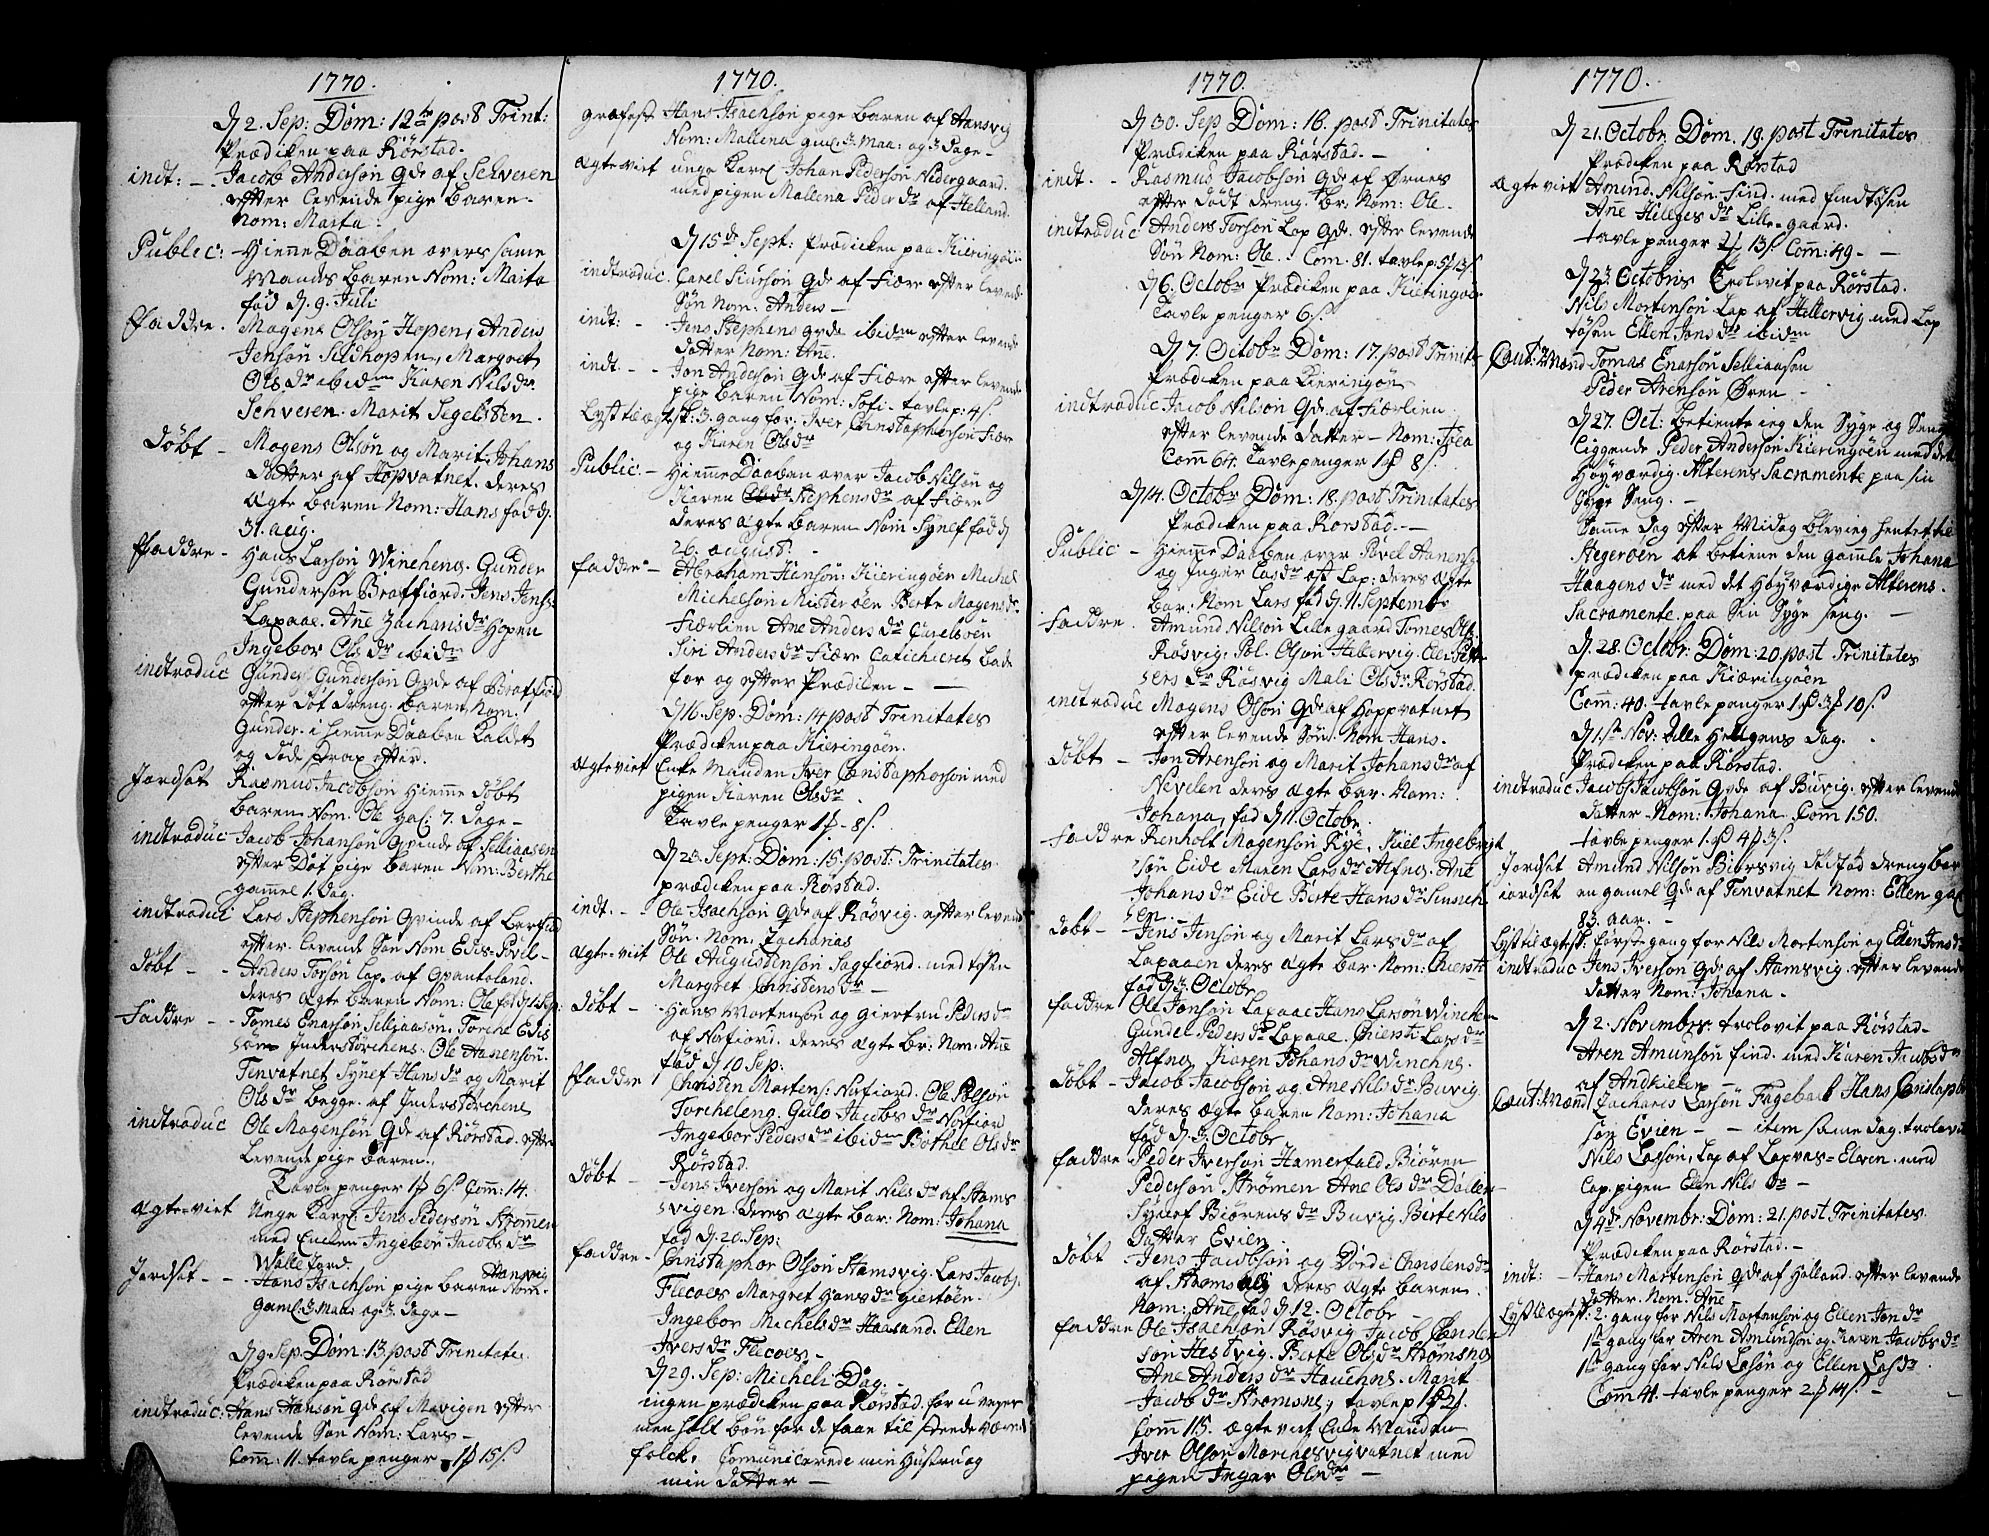 1770.
D. 2. Sep: Dom: 12te post Trint:
Prædiken paa Rörstad.
indt: - Jacob Andersön Qde af Schvesen
efter levende pige baren
Nom: Marta -
Public: Hiemme Daaben overs same
Mands baren Nom: Marta
fød D. 9. Juli
Faddre. Mogens Olsön Hopen, Anders
Jensön Sildhopen, Margret
Ols dr ibidm Karen Nils dr
Schvesen. Marit Segelsten.
Döbt - Mogens Olsön og Marit Johans
datter af Hopvatnet. deres
ægte baren Nom: Hans fød d.
31. aug.
Faddre - Hans Larsön Winchenes. Gunder
Gundersön Bratfiord. Jens Jens:
Lapaae. Ane Zacharis dr Hopen
Ingebor Ols dr ibidm
indtroduc Gunder Gundersön Qvde af Bratfiord
efter Döt dreng baren Nom.
Gunder. i hiemme Daaben kaldet
og döde strax efter.
Jordsat Rasmus Jacobsön hiemme döbt
baren Nom. Ole gaml: 7. Dage -
indtroduc Jacob Johansön Qvinde af Selliaasen
efter Döt pige baren Nom: Berthe
gammel 1. Dag.
indtroduc Lars Stephensön Qvinde af Lerfiord
efter levende Sön Nom Edis-Povel -
döbt - - Anders Torsön Lap. af Qvantoland.
deres ægte baren Nom: Ole fød d 1 Sep:
Faddre - - Tomes Enarsön Selliaasön, Torche Edis
sön Inderstörchens. Ole Aanensön.
Tenvatnet Synef Hans dr og Marit
Ols dr begge. af Inderstörchens
indtroduc Ole Mogensön Qde af Rörstad. efter
Levende pige baren.
Tavle penger 1 6 s Com: 14.
Ægte-viet Unge Carel Jens Pedersön Strömen
med Encken Ingebor Jacobs dr
Wallejord.
Jordsat - - Hans Isachsön pige baren Aansvig Nom.
Gaml: 3. Maa: og 3. Dage -
D. 9. Sep. Dom: 13. post Trinitate.
Prædiken paa Rörstad
indtroduc: Hans Hansön Qde af Mavigen efter
levende Sön Nom: Lars -
Com: 11. tavle penger 1 15 s.
1770.
grafæst Hans Isachsön pige baren af Aansvig
Nom: Mallena gml: 3. Maa: og 3 Dage -
Ægte viet unge Carel Johan Pedersön Nedergaard.
med pigen Mallena Peder dr af Helland.
D. 15de Sept: Prædicken paa Kieringöen
indtroduc. Carel Siursön Qde af Fiære efter levende
Sön Nom. Anders -
indt: - Jens Stephens qvde ibidm efter levende
datter Nom: Ane.
indt. - - Jon Andersön Qde af Fiære efter levende
pige baren Nom: Sofi. tavlep: 4 s.
Lyst til ægtsk: 3. gang for. Iver Christaphersön Fiære
og Karen Ols dr
Public. - Hiemme Daaben over Jacob Nilsön og
Karen Stephens dr af Fiære
deres ægte baren Nom Synef fød d
26. august. -
faddre - Abraham Hensön. Kieringöen Michel
Michelsön Misteröen Berte Mogens dr
Fiærlien Ane Anders dr Carelsöen
Siri Anders dr Fiære Catichiceret bade
for og efter Prædiken - -
D. 16. Sep. Dom: 14 post Trinitates
Prædiken paa Kieringöen.
Ægteviet Encke Manden Iver Christaphersön med
pigen Karen Ols dr
Tavle penger 1 - 8 s.
D. 23. Sept: Dom: 15. post: Trinitates.
prædiken paa Rörstad.
indt. - - Ole Isachsön Qde af Rösvig. efter levende
Sön. Nom. Zacharias
Ægte-viet Ole Augustinsön Sagfiord. med tösen
Margret Christens dr -
Döbt - Hans Mortensön og Giertru Peders dr
af Norfiord. deres ægte br: Nom: Ane
fød d 10 Sep:
Faddre Christen Martens: Norfiord. Ole Polsön
Torcheleng. Gulo Jacobs dr Norfiord
Ingebor Peders dr ibidm Bothel Ols dr
Rörstad.
Döbt - Jens Iversön og Marit Nils dr af Stams
svigen deres ægte bar: Nom: Johana
fød D. 20. Sep:
faddre - Christaphor Olsön Stamsvig. Lars Jacobs:
Flecoes Margret Hans dr Giertöen.
Ingebor Michels dr Haasand. Ellen
Ivers dr Flecoes -
D 29. Sep: Micheli Dag. -
ingen prædiken paa Rörstad. for u veyer
men holt bön for de faae til stæde værende
folck. Comunicerede min Hustru og
min datter -
1770.
D 30. Sep Dom: 16. post Trinitates
Prædiken paa Rörstad. -
indt. - Rasmus Jacobsön Qde af Örnes
efter dødt dreng. br. Nom: Ole -
indtroduc Anders Torsön Lap Qde. efter levende
Sön Nom: Ole. - Com: 81. tavle p: 5 13 s
D 6. Octobr Prædiken paa Kieringöe
Tavle penger 6 s.
D 7. Octobr Dom: 17. post Trinites
Prædiken paa Kieringöe
indtroduc Jacob Nilsön Qde. af Fiærlien
efter levende datter - Nom:
Com 64. Tavle penger 1 8 s.
D 14. Octobr Dom: 18. post Trinitates
Prædiken paa Rorstad. -
Public - Hiemme Daaben over Povel Aanens:
og Inger Las dr ost Lap: deres ægte
bar. Nom Lars fød d. 11. Septembr
Faddre. Amund Nilsön Lille gaard Tomes Ols.
Rösvig. Pol. Olsön Hellervig. Olen Pette
sers dr Rösvig Mali Ols dr Rörstad.
indtroduc Mogens Olsön Qde af Hopvatnet
efter levende Sön. Nom Hans.
döbt - Jon Arensön og Marit Johans dr af
Nevelen deres ægte bar. Nom:
Johana, fød d 11. Octobr.
Faddre Renholt Mogensön Rye, Kiel Ingebrigt
sön Eide Maren Lars dr Alfnes. Ane
Johans dr Eide Berte Hans dr
sen -
döbt - Jens Jensön og Marit Lars dr af
Lapaaen deres ægte bar. Nom: Chiersti
fød D 3. Octobr
faddre Ole Jonsön Lapaae Hans Larsön Winchen
Gundel Peders dr Lapaae. Chiersti Lars dr
Alfnes Karen Johans dr Winchenes.
Döbt - Jacob Jacobsön og Ane Nils dr Buvig.
deres ægte baren Nom: Johana
fød d. 3. Octobr
faddre Peder Iversön Hamerfald Biören
Pedersön Strømen Ane Ols dr Döllen
Synef Biörens dr Buvig Berte Nils
datter Evien
döbt - Jens Jacobsön og Dorde Christens dr
af Stroms deres ægte baren.
Nom: Ane fød D 12. Octobr
faddre Ole Isachsön Rösvig Jacob Christen
sön Hestvig. Berte Ols dr Strömsnes
Ane Anders dr Hauchnes. Marit
Jacob dr Stromsnes, tavle p 1 2 s.
Com 115. Ægte viet Encke Manden
Iver Olsön Morchesvigvatnet med
pigen Inger Ols dr -
1770.
D. 21. Octobr Dom. 19. post Trinitates
Prædiken paa Rorstad
Ægte viet Amund Nilsön. Find. med findtösen
Ane Hilleges dr Lille-gaard.
tavle penger 2 13 s Com: 49 - -
D 23. Octobris Trolovit paa Rörstad.
Nils Mortensön Lap af Hellervig med Lap
tösen Ellen Jens dr ibidm
Caut: Mænd Tomas Enarsön Selliaasen
Peder Arensön Ören -
D. 27. Oct: betiente ieg den Syge og Seng
liggende Peder Andersön Kieringöen med det
Höyværdig. Alterens Sacramente paa sin
Syge Seng. -
Samme Dag efter Midag blev ieg hentet til
Hegeröen at betiene den gamle Johana
Haagens dr med det Höyværdige Alterens.
Sacramente. paa Sin Syge seng. -
D. 28. Octobr: Dom: 20. post Trinitates
prædiken paa Kiæringöen
Com: 40. tavle penger 1 3 10 s.
D 1ste Nov: Alle Helligens Dag.
Prædiken paa Rörstad.
indtroduc Jacob Jacobsön Qvde af Buvig. efter levende
datter Nom: Johana Com 150.
tavle penger 1 4 3 s.
Jordsat Amund Nilsön Biörsvig dødfød dreng bar
iordsat en gamel Qde af Tenvatnet Nom: Ellen gaml
83. aar. -
Lyst til ægtesk: förste gang for Nils Mortensön og Ellen Jens dr
indtroduc Jens Iversön Qde af Stamsvig. efter levende
datter Nom: Johana -
D 2. Novembr. trolovit paa Rörstad -
Aren Amunsön find. med Karen Jacobs dr
af Andkieken
Caut: Mænd Zacharis Larsön Fagebacb Hans Christaph
sön Evien - - item same dag. trolovit
Nils Lassön, Lap af Lapvas=Elven. med
Lap. pigen Elen Nils dr -
D 4de Novembr: Dom: 21. post Trinitates
Prædicken paa Rörstad. -
indt: - Hans Mortensön Qde af Holland. efter levende
datter. Nom. Ane -
Lyst til ægtesk: 2. gang for Nils Mortensön og Ellen Jen dr
1ste gang for Aren Amundsön og Karen Jacobs dr
1ste gang for Nils Lasön og Ellen Las dr
Com 41. tavle penger 2 14 s. -